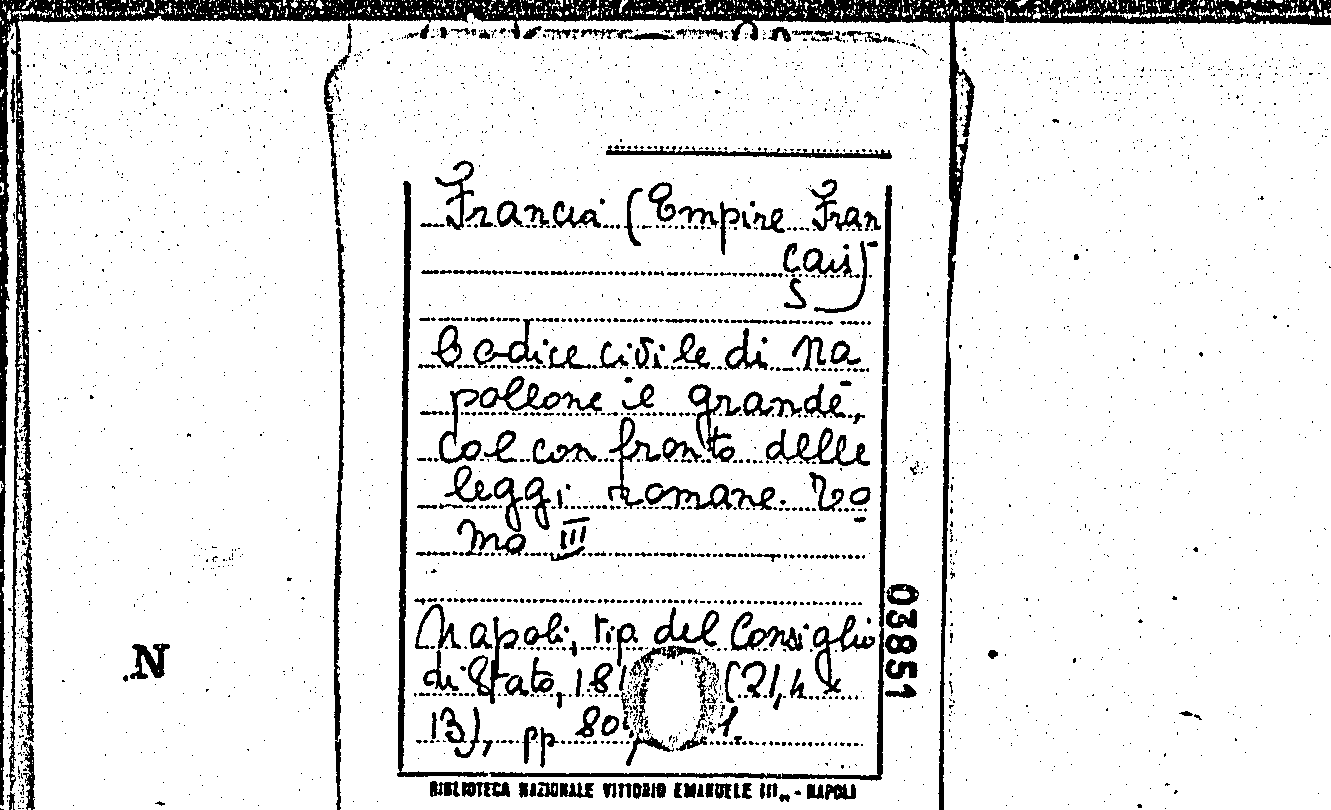 Francia (Empire Fran
çais)
Codice civile di Na
polleone il grande,
col confronto delle
leggi romane. To
mo III
Napoli, tip. del Consiglio
di Stato, 181 (21,4 x
13), pp 80 1.
03851
N
BIBLIOTECA NAZIONALE VITTORIO EMANUELE III - NAPOLI